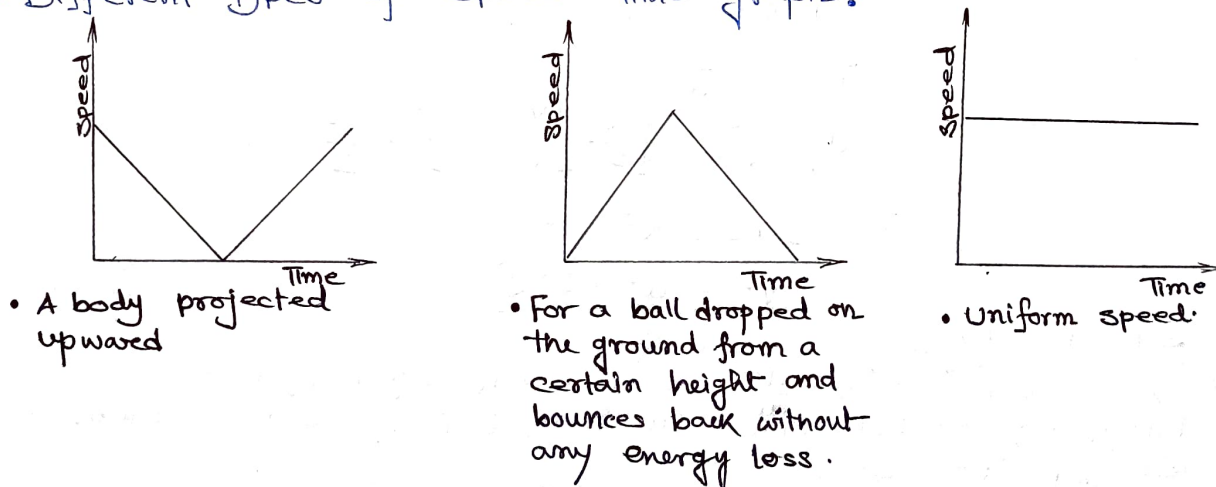 Different
Speed
Time
• A body projected
upward
Speed
Time
• For a ball dropped on
the ground from a
certain height and
bounces back without
any energy loss.
Speed
Time
• Uniform speed.